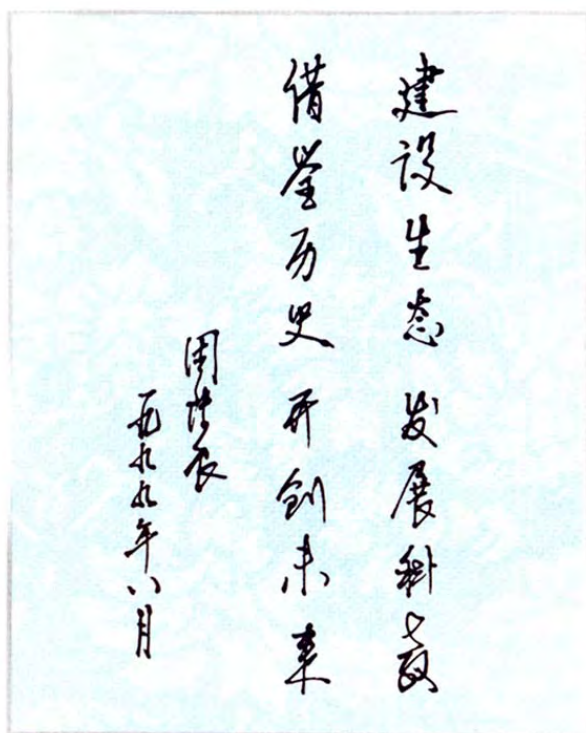 建设生态 发展科教
借鉴历史 开创未来
一九九九年八月